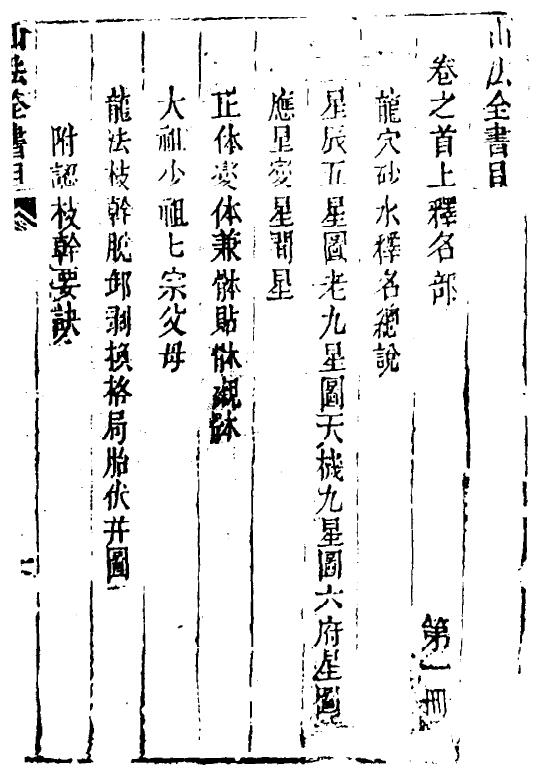 山法全書目
卷之首上釋名部 第一冊
龍穴砂水釋名總說
星辰五星圖老九星圖天機九星圖六府星圖
應星變星間星
正体变体兼体貼体襯体
大祖少祖七宗父母
龍法枝幹脫卸剥換格局胎伏并圖
附認枝幹要訣
山法全書目